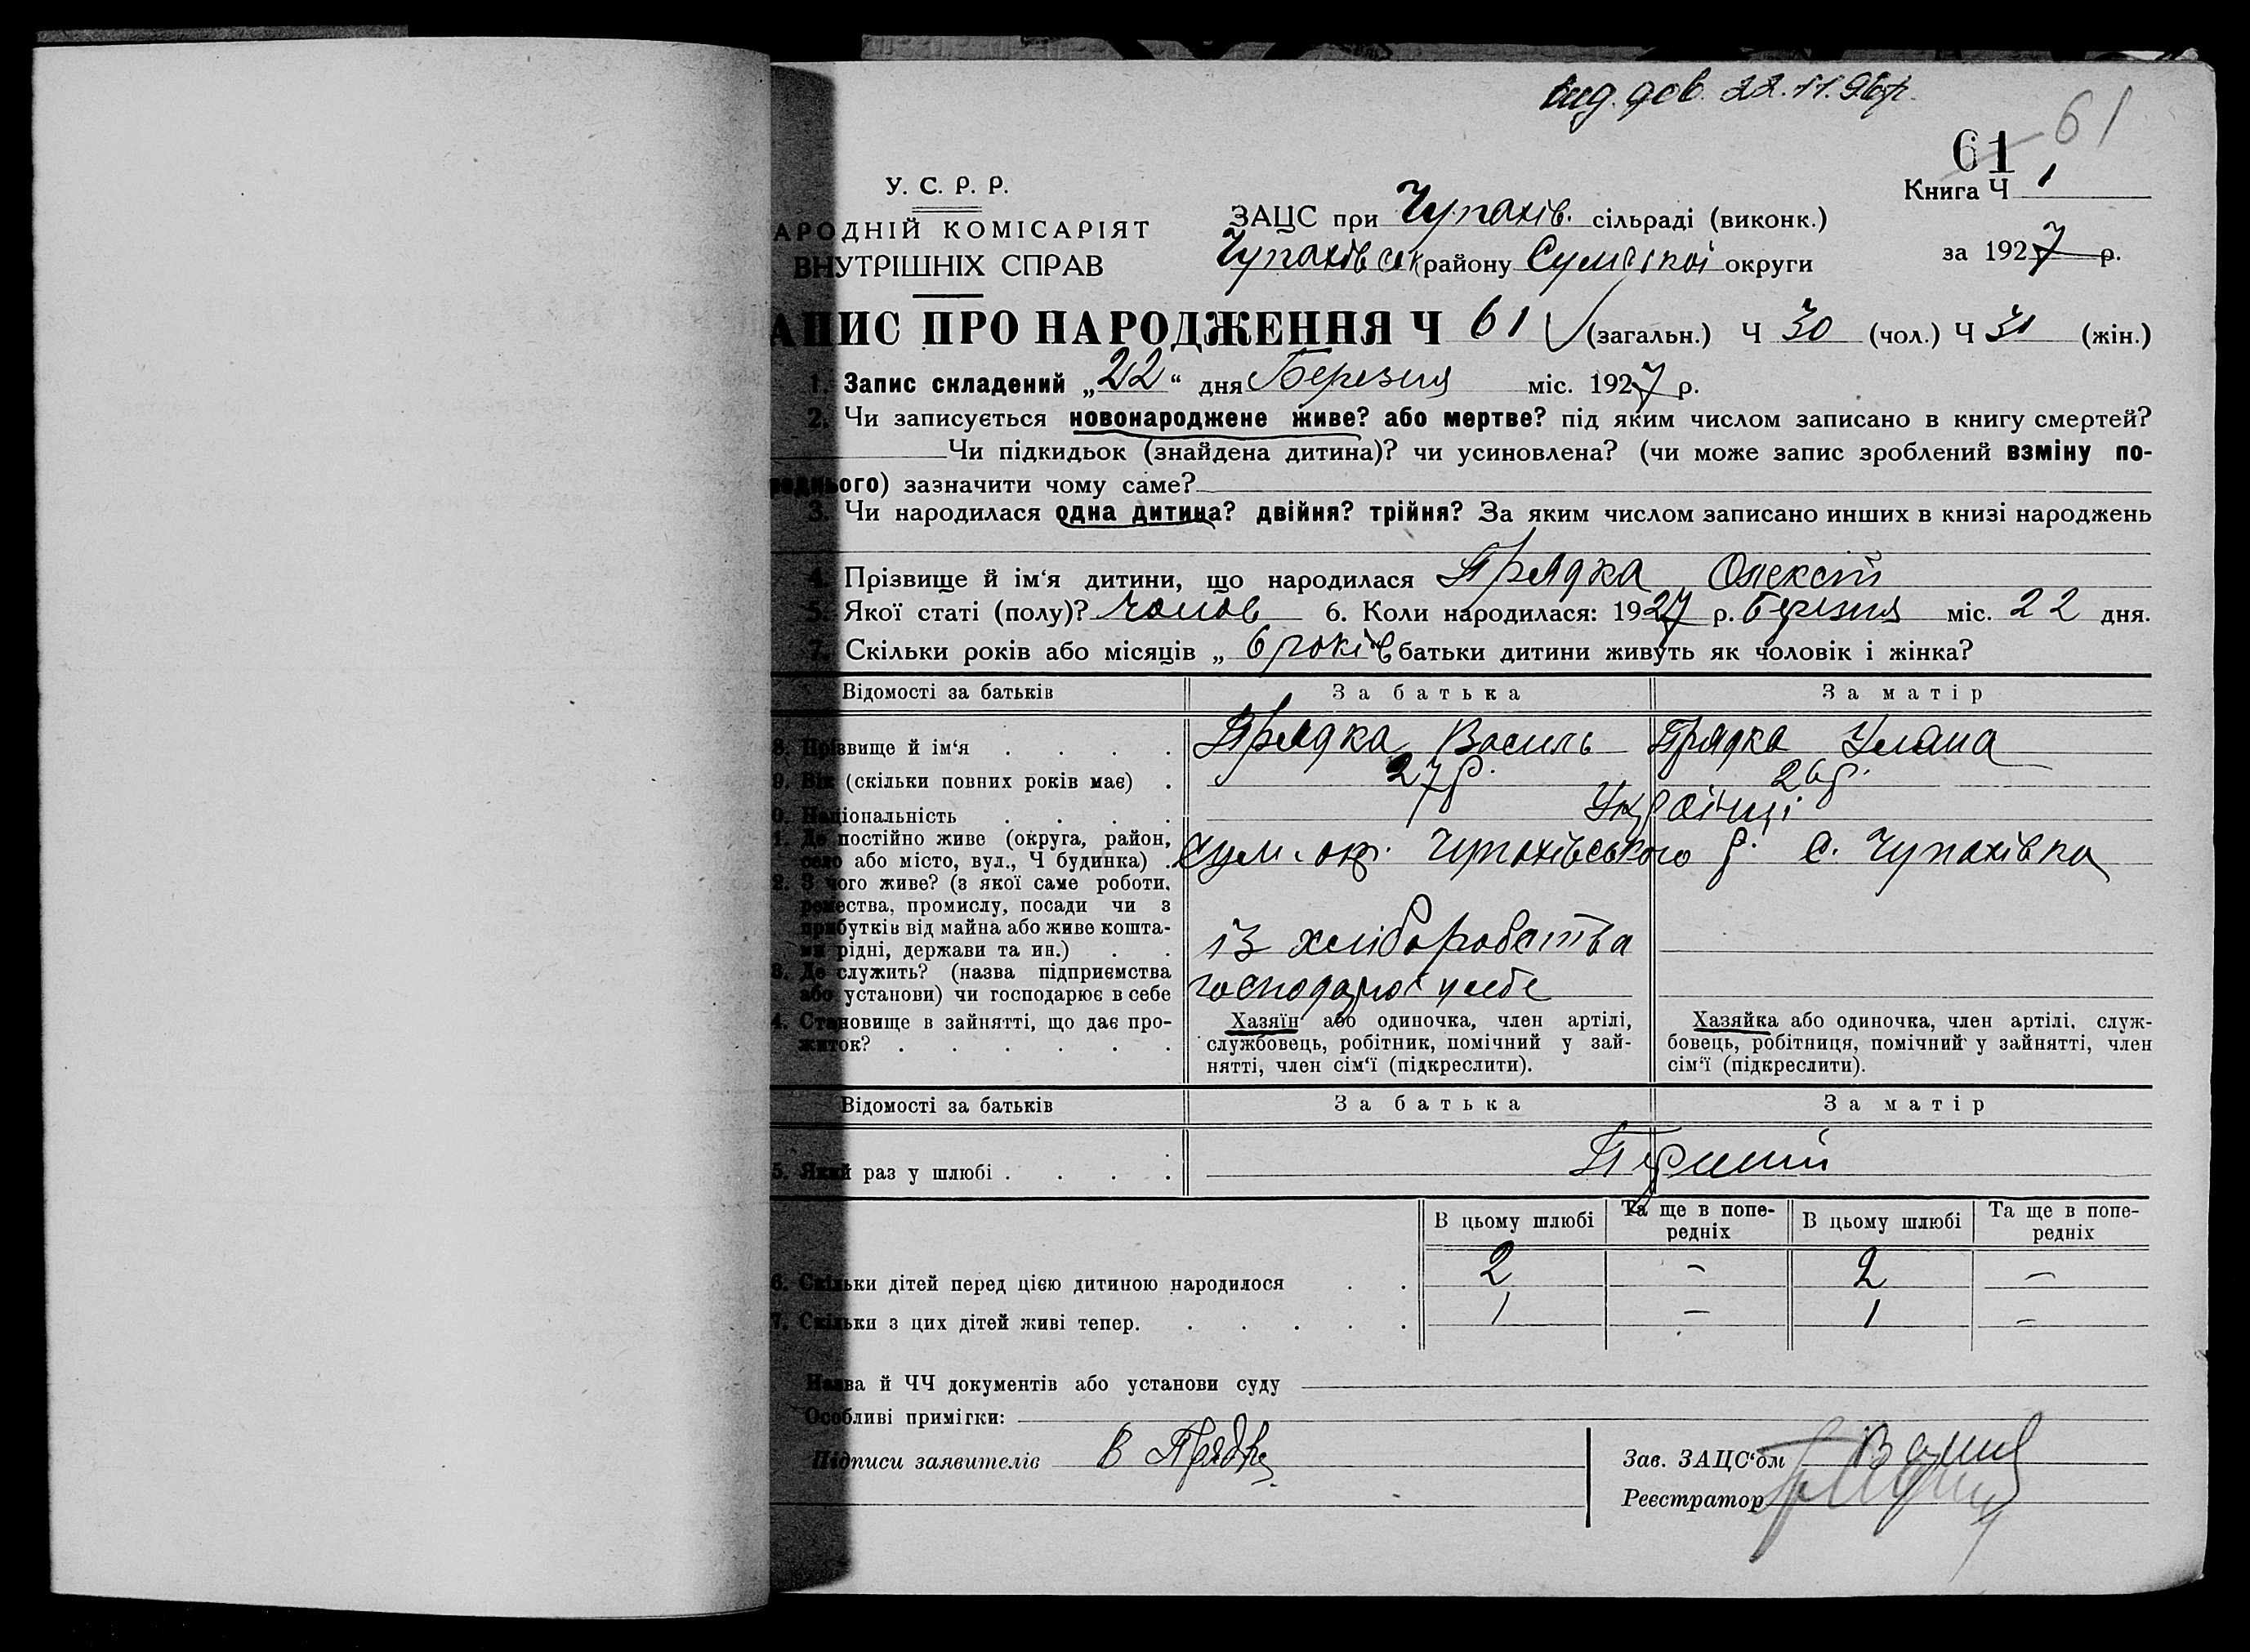 вид. дов. 22.11.96р.
61
61
У. С. Р. Р.
АРОДНІЙ КОМІСАРІЯТ
ВНУТРІШНІХ СПРАВ
ЗАЦС при Чупахів. сільраді (виконк.)
Чупахівськ району Сумської округи
Книга Ч 1
за 1927 р.
АПИС ПРО НАРОДЖЕННЯ Ч 61 (загальн.) Ч 30 (чол.) Ч 31 (жін.)
1. Запис складений „22“ дня Березня міс. 1927 р.
2. Чи записується новонароджене живе? або мертве? під яким числом записано в книгу смертей?
Чи підкидьок (знайдена дитина)? чи усиновлена? (чи може запис зроблений взміну по-
реднього) зазначити чому саме?
3. Чи народилася одна дитина? двійня? трійня? За яким числом записано инших в книзі народжень
4. Прізвище й ім‘я дитини, що народилася Прядка Олексій
5. Якої статі (полу)? чолов 6. Коли народилася: 1927 р. березня міс. 22 дня.
7. Скільки років або місяців „ 6 років батьки дитини живуть як чоловік і жінка?
Відомості за батьків За батька За матір
8. Прізвище й ім‘я . . . . Прядка Василь Прядка Уляна
9. Вік (скільки повних років має) . 27 р. 26 р.
0. Національність . . . . Українці
1. Де постійно живе (округа, район,
село або місто, вул., Ч будинка) . Сум. окр. Чупахівського р. с. Чупахівка
2. З чого живе? (з якої саме роботи,
ремества, промислу, посади чи з
прибутків від майна або живе кошта-
ми рідні, держави та ин.) . . із хліборобства
3. Де служить? (назва підприємства
або установи) чи господарює в себе господарює у себе
4. Становище в зайнятті, що дає про-
житок? . . . . . .
Хазяїн або одиночка, член артілі,
службовець, робітник, помічний у зай-
нятті, член сім‘ї (підкреслити).
Хазяйка або одиночка, член артілі, служ-
бовець, робітниця, помічний у зайнятті, член
сім‘ї (підкреслити).
Відомості за батьків За батька За матір
5. Який раз у шлюбі . . . . Перший
В цьому шлюбі Та ще в попе-
редніх В цьому шлюбі Та ще в попе-
редніх
6. Скільки дітей перед цією дитиною народилося . . 2 – 2 –
7. Скільки з цих дітей живі тепер. . . . . . 1 – 1 –
Назва й ЧЧ документів або установи суду
Особливі примітки:
Підписи заявителів В Прядка
Зав. ЗАЦС‘ом
Реєстратор